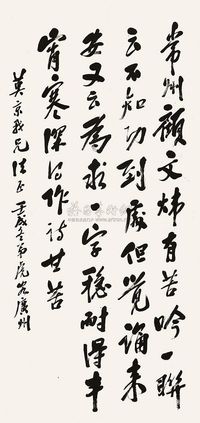 常州顧文煒有苦吟一聯
云不知功到處但覺誦來
安又云為求一字穩耐得半
宵寒深得作詩甘苦
莫京我兄法正 壬戌冬弟廣州